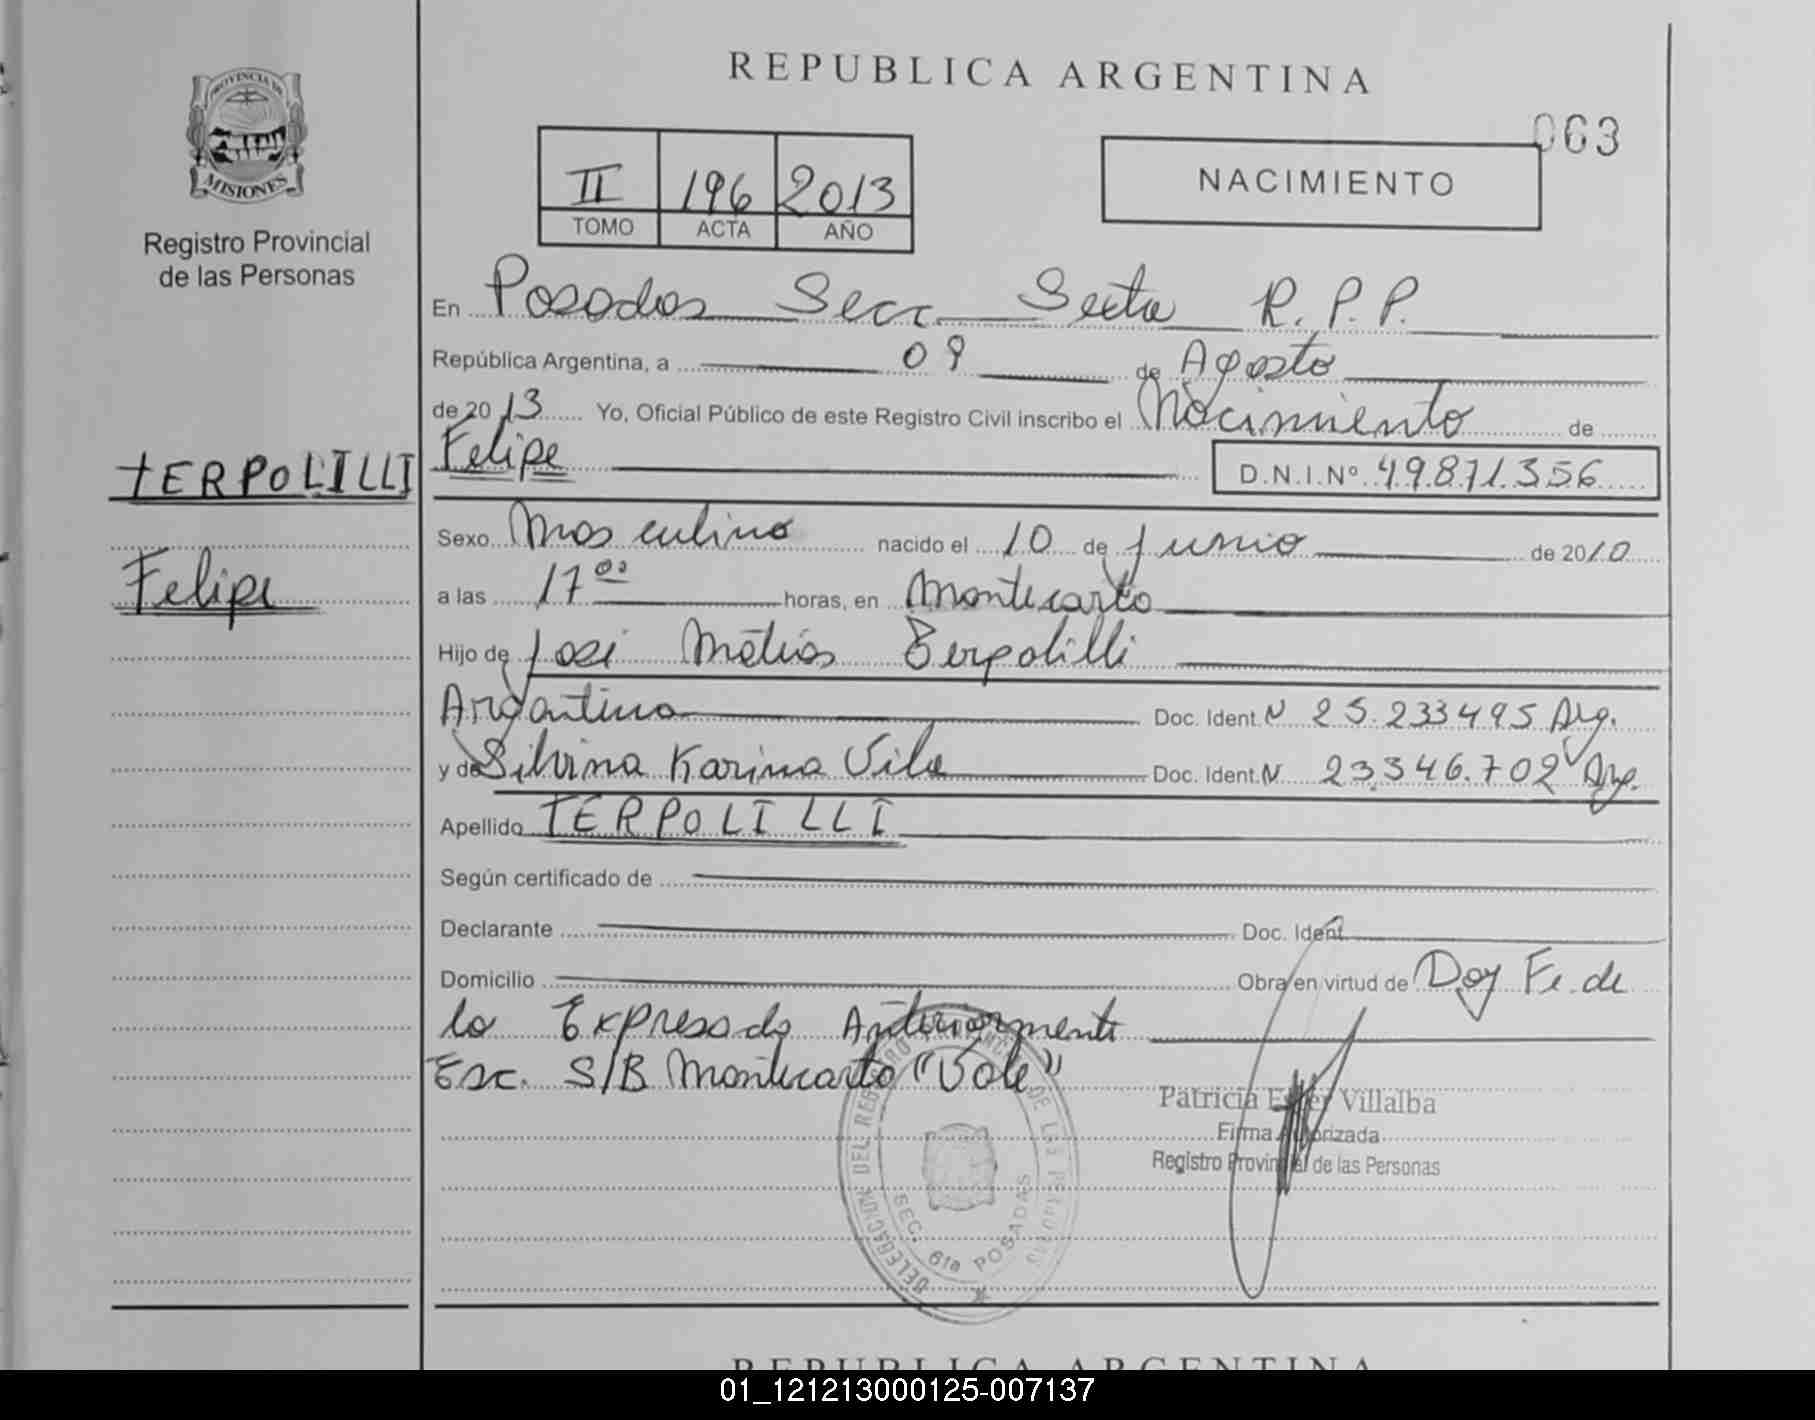 PROVINCIA DE
MISIONES
Registro Provincial
de las Personas
TERPOLILLI
Felipe
REPUBLICA ARGENTINA
063
II 196 2013
TOMO ACTA AÑO
NACIMIENTO
En Posadas Secc. Sexta R.P.P.
República Argentina, a 09 de Agosto
de 2013 Yo, Oficial Público de este Registro Civil inscribo el Nacimiento de
Felipe D.N.I.Nº 49.871.356
Sexo Masculino nacido el 10 de Junio de 2010
a las 17 00 horas, en Montecarlo
Hijo de José Matías Terpolilli
Argentino Doc. Ident. N 25.233495 Arg.
y de Silvina Karina Vila Doc. Ident. N 23.346.702 Arg.
Apellido TERPOLILLI
Según certificado de
Declarante Doc. Ident.
Domicilio Obra en virtud de Doy Fe de
lo Expresado Anteriormente
Esc. S/B Montecarlo "Vale"
Patricia Ester Villalba
Firma Autorizada
Registro Provincial de las Personas
DELEGACION DEL REGISTRO PROVINCIAL DE LAS PERSONAS
SEC. 6ta POSADAS
REPUBLICA ARGENTINA
01_121213000125-007137